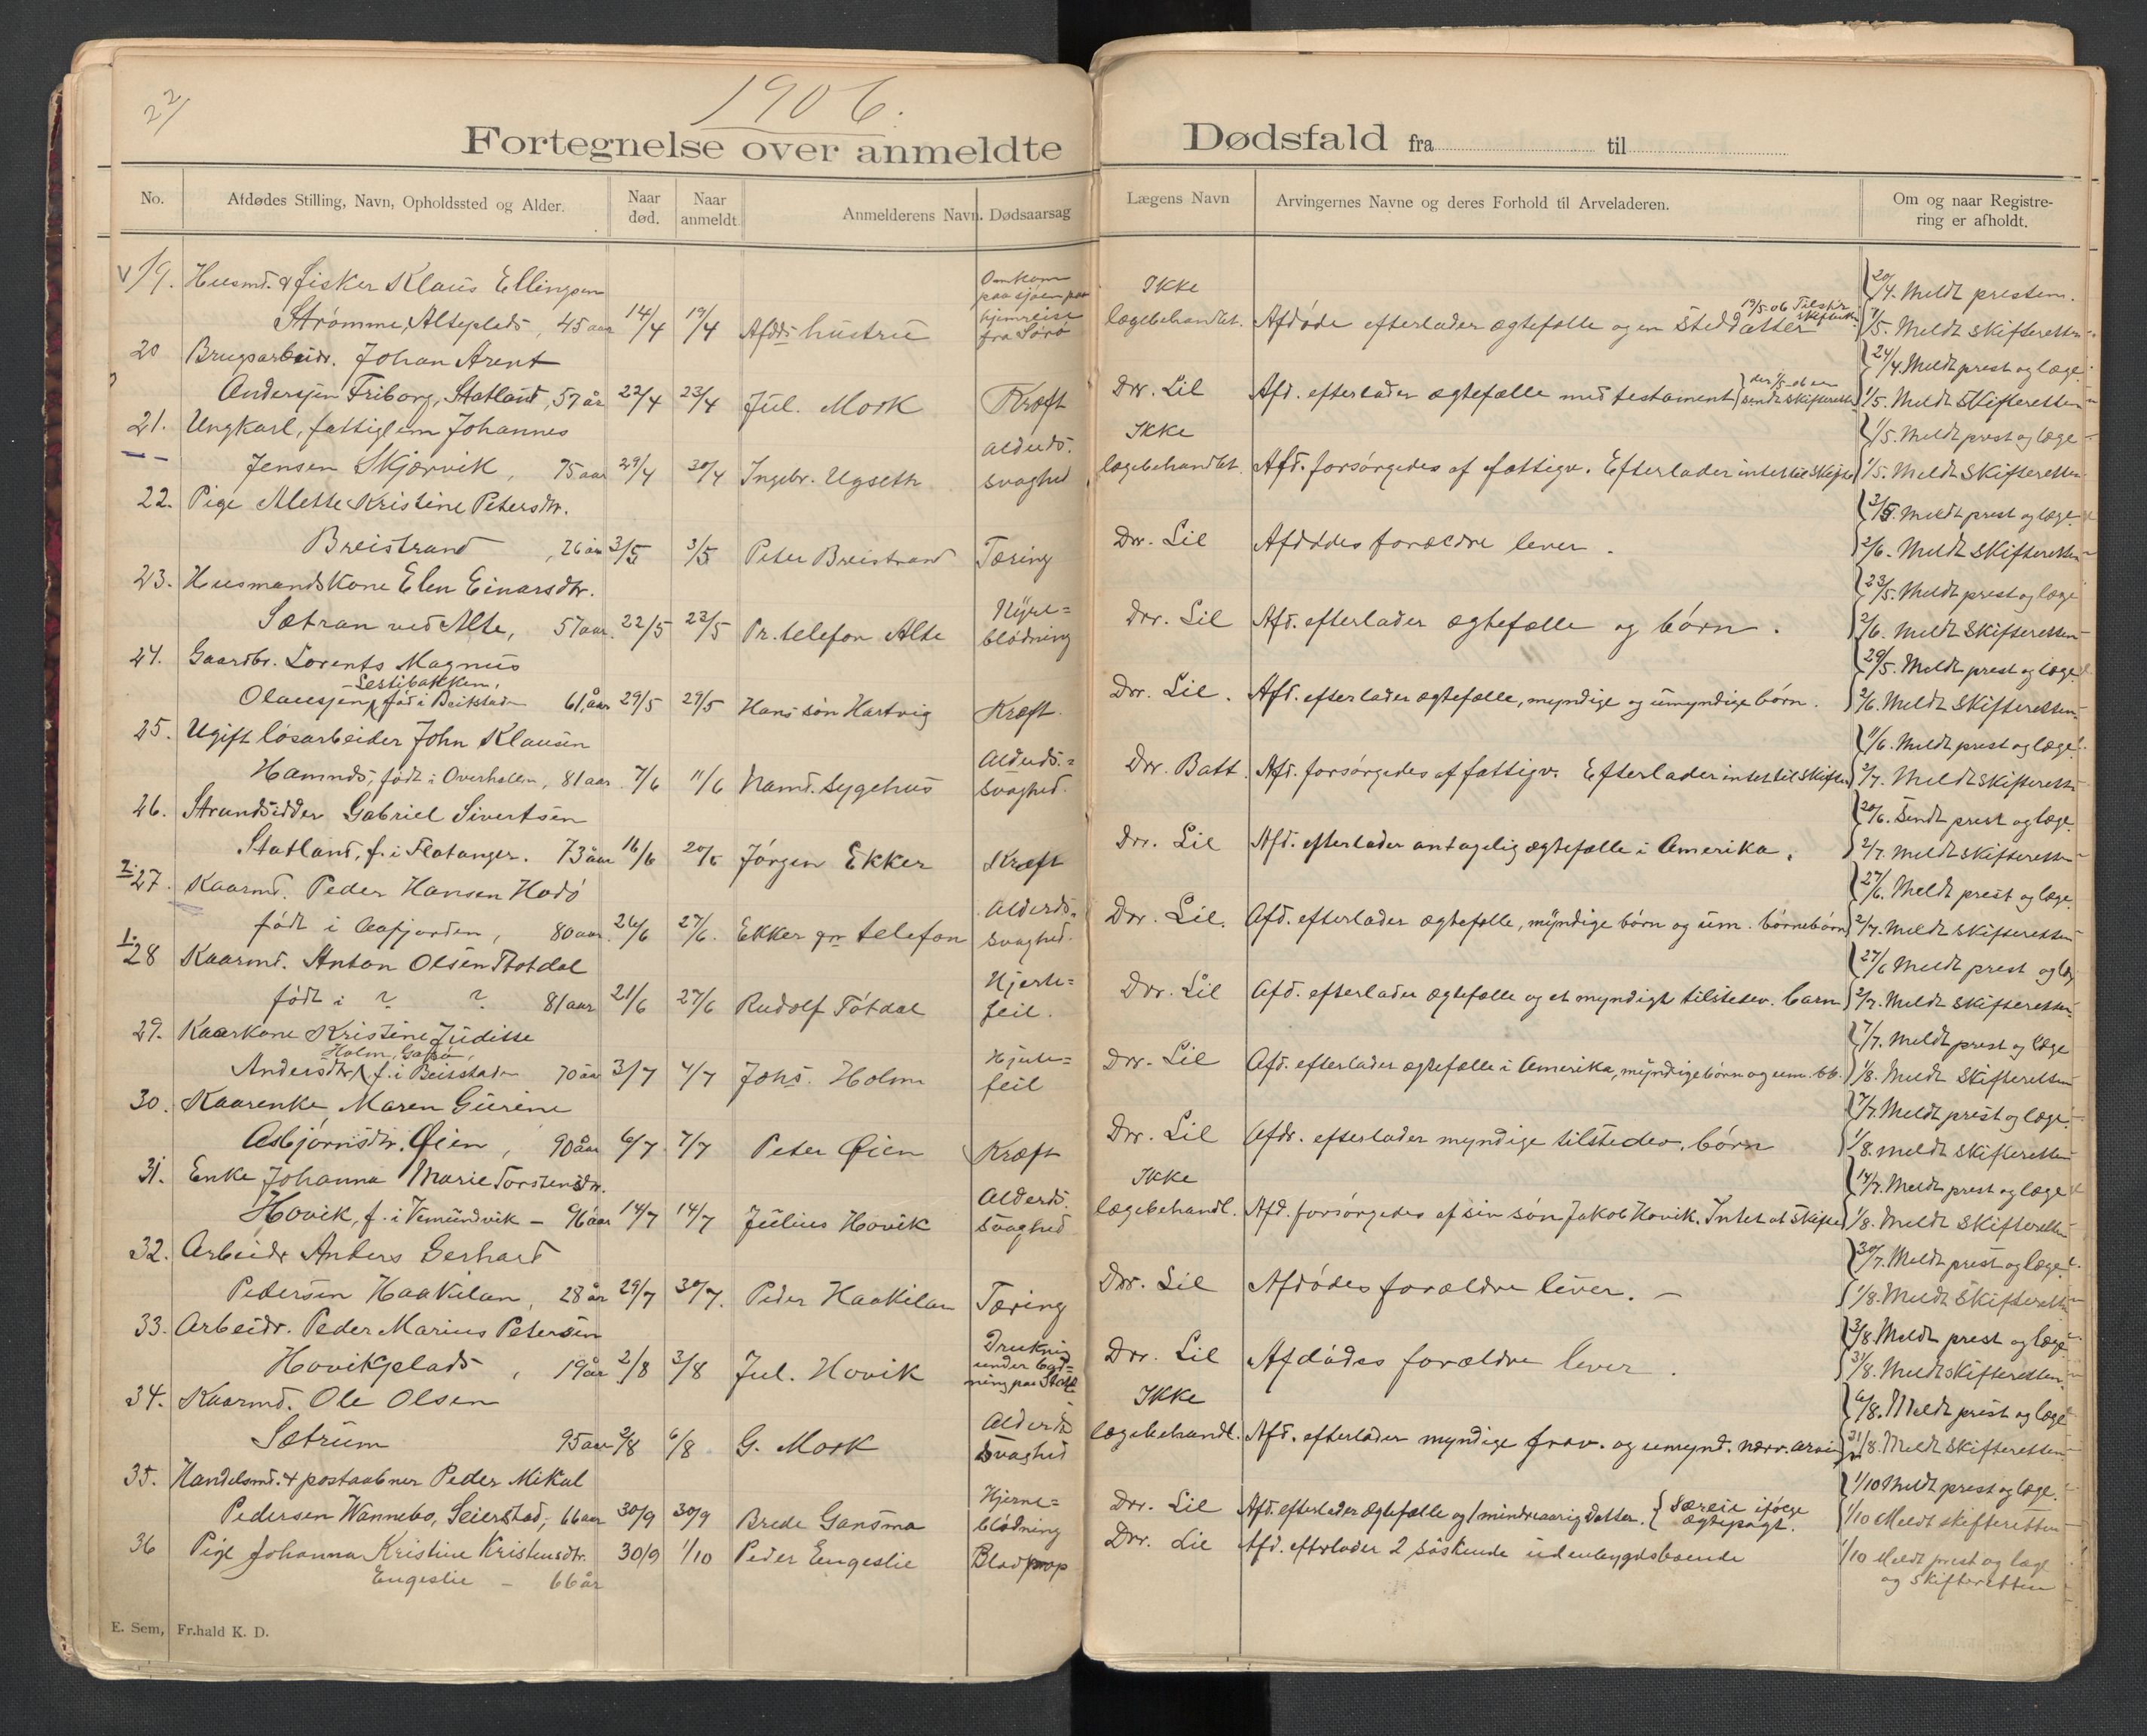 22/
1906.
Fortegnelse over anmeldte Dødsfald fra til
No. Afdødes Stilling, Navn, Opholdssted og Alder. Naar død. Naar anmeldt. Anmelderens Navn. Dødsaarsag Lægens Navn Arvingernes Navne og deres Forhold til Arveladeren. Om og naar Registrering er afholdt.
V 19. Husmd. & fisker Klaus Ellingsen Omkom paa sjøen paa Ikke 20/4. Meldt presten.
Strømme, Alteplads, 45 aar 14/4 19/4 Afdds hustru hjemreise fra Sørø lægebehandlet. Afdøde efterlader ægtefælle og en steddatter 1/5. Meldt skifteretten
20 Brugsarbeidr. Johan Arent 24/4 Meldt prest og læge.
Andersen Friborg, Statland, 57 år 22/4 23/4 Jul. Mork Kræft Dr. Lil Afd. efterlader ægtefælle med testament 1/5. Meldt Skifteretten
21. Ungkarl, fattiglem Johannes Alderds. Ikke 1/5. Meldt prest og læge
Jensen Skjærvik, 75 aar 29/4 30/4 Ingebr. Ugseth svaghed lægebehandlet. Afd. forsørgedes af fattigv. Efterlader intet til Skifte 1/5. Meldt Skifteretten
22. Pige Mette Kristine Petersdtr. 3/5. Meldt prest og læge
Breistrand, 26 år 3/5 3/5 Peter Breistrand Tæring Dr. Lil Afdødes forældre lever. 2/6. Meldt Skifteretten
23. Husmandskone Elen Einarsdtr. Nyre= 23/5. Meldt prest og læge
Sætran ved Alte, 57 aar. 22/5 23/5 Pr. telefon Alte blødning Dr. Lil Afd. efterlader ægtefælle og børn. 2/6. Meldt Skifteretten
24. Gaardbr. Lorents Magnus 29/5. Meldt prest og læge
Olaussen, Lestibakken, fød i Beitstaden 61 aar 29/5 29/5 Hans søn Hartvig Kræft. Dr. Lil. Afd. efterlader ægtefælle, myndige og umyndige børn. 2/6. Meldt Skifteretten
25. Ugift løsarbeider John Klausen Alderds.= 11/6. Meldt prest og læge.
Hamnds, født i Overhallen, 81 aar 7/6 11/6 Namd. sygehus svaghed. Dr. Batt. Afd. forsørgedes af fattigv. Efterlader intet til Skifte 2/7. Meldt skifteretten
26. Strandsidder Gabriel Sivertsen 20/6. Sendt prest og læge.
Statland, f. i Flatanger. 73 aar 16/6 20/6 Jørgen Ekker Kræft Dr. Lil Afd. efterlader antagelig ægtefælle i Amerika. 2/7. Meldt skifteretten
2. 27. Kaarmd. Peder Hansen Hodø Alderds= 27/6. Meldt prest og læge.
født i Aafjorden, 80 aar. 26/6 27/6. Ekker pr telefon svaghed. Dr. Lil. Afd. efterlader ægtefælle, myndige børn og um. børnebørn 2/7. Meldt Skifteretten
1. 28 Kaarmd. Anton Olsen Totdal Hjerte= 27/6 Meldt prest og læge
født i ? ? 81 aar 21/6 27/6 Rudolf Tøtdal feil. Dr. Lil Afd. efterlader ægtefælle og et myndigt tilstedev. barn 2/7. Meldt Skifteretten
29. Kaarkone Kristine Juditte Hjerte= 7/7. Meldt prest og læge
Andersdtr. Holm, f. i Beitstaden 70 år 3/7 4/7 Johs. Holm feil Dr. Lil Afd. efterlader ægtefælle i Amerika, myndige børn og um. bb. 1/8. Meldt Skifteretten
30. Kaarenke Maren Gurine 7/7. Meldt prest og læge.
Asbjørnsdtr. Øien, 90 aar 6/7 7/7 Peter Øien Kræft Dr. Lil Afdr. efterlader myndige tilstedev. børn 1/8. meldt Skifteretten
31. Enke Johanna Marie Torstensdtr. Alderds. Ikke 14/7. Meldt prest og læge
Hovik, f. i Vemundvik - 96 aar 14/7 14/7 Julius Hovik svaghed lægebehandl. Afd. forsørgedes af sin søn Jakob Hovik. Intet at Skifte 1/8. Meldt Skifteretten
32. Arbeidr Anders Gerhard 30/7. Meldt prest og læge.
Pedersen Haakilan, 28 år 29/7 30/7. Peder Haakilan Tæring Dr. Lil Afdødes forældre lever. - 1/8. Meldt Skifteretten
33. Arbeidr. Peder Marius Petersen Drukning 3/8. Meldt prest og læge
Hovikplads, 19 år 2/8 3/8 Jul. Hovik under badning paa Dr. Lil Afdødes forældre lever. 31/8. Meldt skifteretten
34. Kaarmd. Ole Olsen Alderds Ikke 6/8. Meldt prest og læge
Sætrum 95 aar 2/8 6/8 G. Mork svaghed lægebehandl. Afd. efterlader myndige frav. og umynd. nærv. arvin 31/8. Meldt Skifteretten
35. Handelsmd. & postaabner Peder Mikal Hjerne= 1/10 Meldt prest og læge.
Pedersen Wannebo, Seierstad, 66 aar 30/9 30/9 Brede Gansmo blødning Dr. Lil Afd. efterlader ægtefælle og 1 mindreaarig datter. særeie ifølge ægtepagt. 1/10 Meldt skifteretten
36 Pige Johanna Kristine Kristensdtr. 30/9 1/10 Peder Engeslie Blodprop Dr. Lie Afd. efterlader 2 søskende udenbygdsboende 1/10 Meldt prest og læge
Engeslie - 66 år og Skifteretten
E. Sem, Fr.hald K. D.